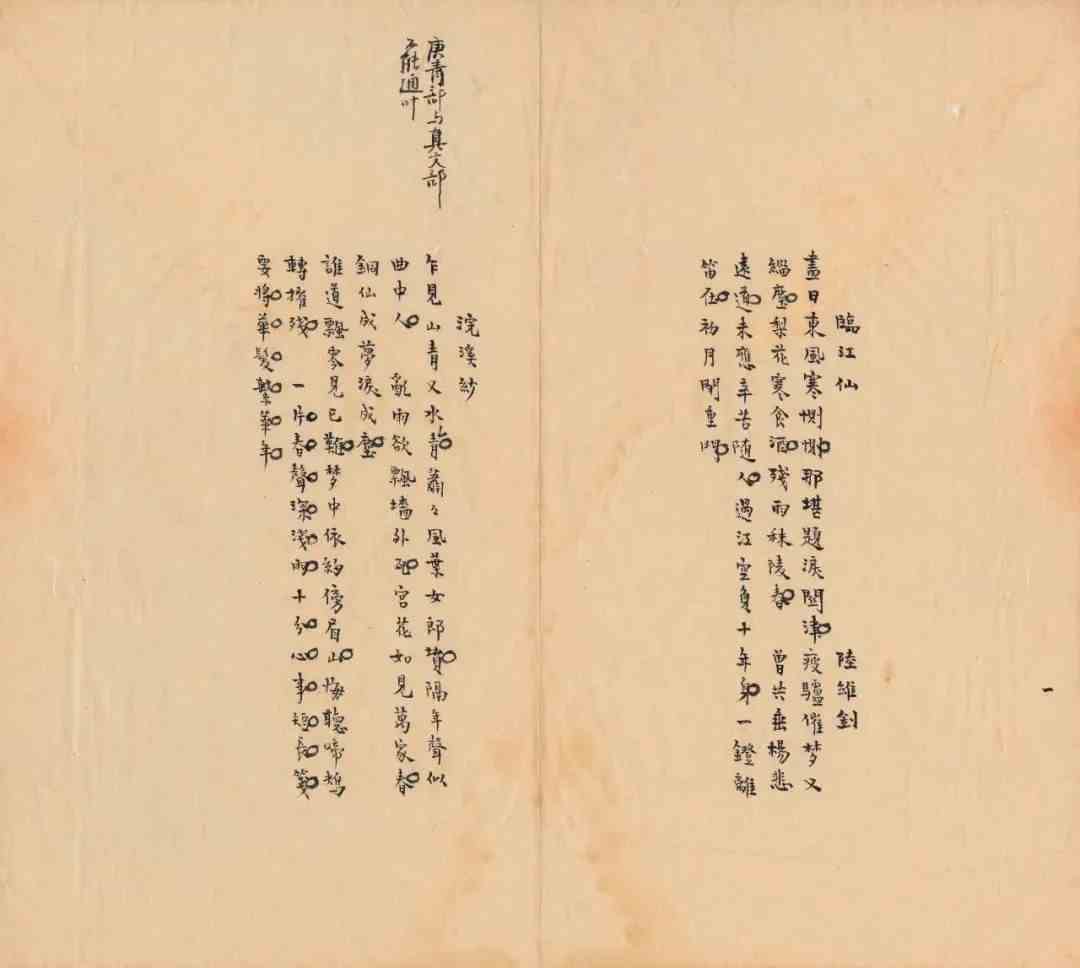 臨江仙 陸維釗
盡日東風寒惻惻那堪題淚關津瘦驢催梦又
緇塵梨花寒食酒殘雨秣陵春 曾共垂楊悲
遠道未應辛苦隨人過江空負十年身一鐙離
笛在初月閉重門
浣溪紗
乍見山青又水青蕭々風葉女郎墳隔年聲似
曲中人 亂雨欲飄墻外死宮花如見萬家春
銅仙成夢淚成塵
誰道飄零見已難梦中依約傍眉山悔聽啼鴂
轉摧殘 一片春聲深淺雨十分心事短長箋
要將華髮繫華年
庚青部与真文部
不能通叶